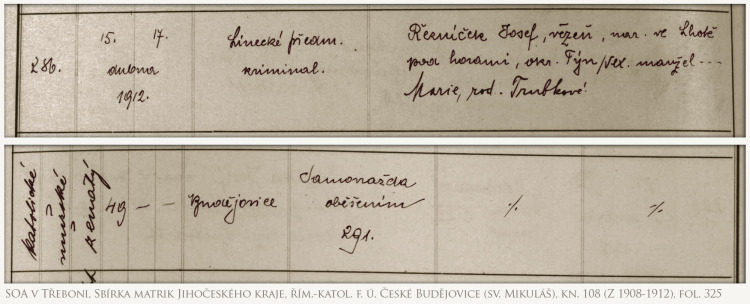 15. 17. Linecké předm. Řezníček Josef, vězeň, nar. ve Lhotě
286. dubna kriminal. pod horami, okr. Týn /Vlt. manžel
1912. Marie, roz. Trubkové
katolické
mužské
ženatý
49 — — Budějovice Samovražda
oběšením
291.
⁒ ⁒
SOA v Třeboni, Sbírka matrik Jihočeského kraje, řím.-katol. f. ú. České Budějovice (sv. Mikuláš), kn. 108 (Z 1908-1912), fol. 325